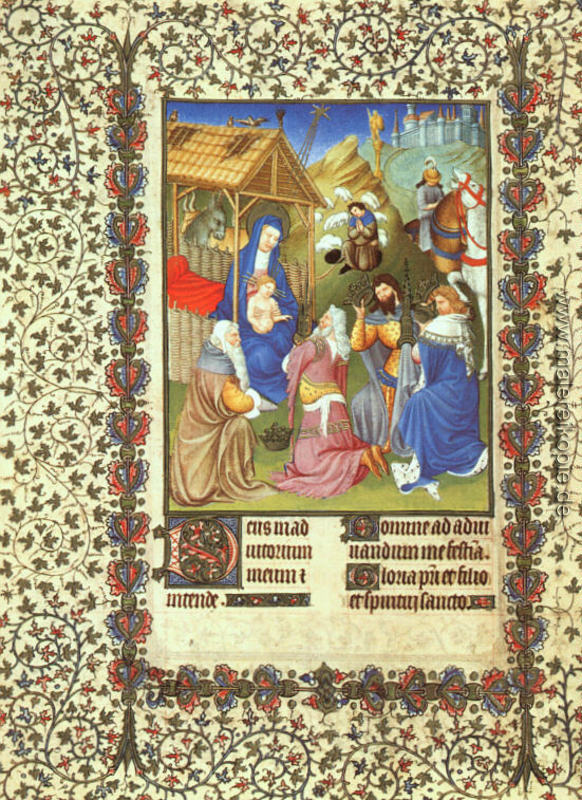 Deus in ad
iutorium
meum ⁊
intende.
Domine ad adiu
uandum me festīa.
Gloria pr̄i et filio
et spiritui sancto.
www.malereikopie.de